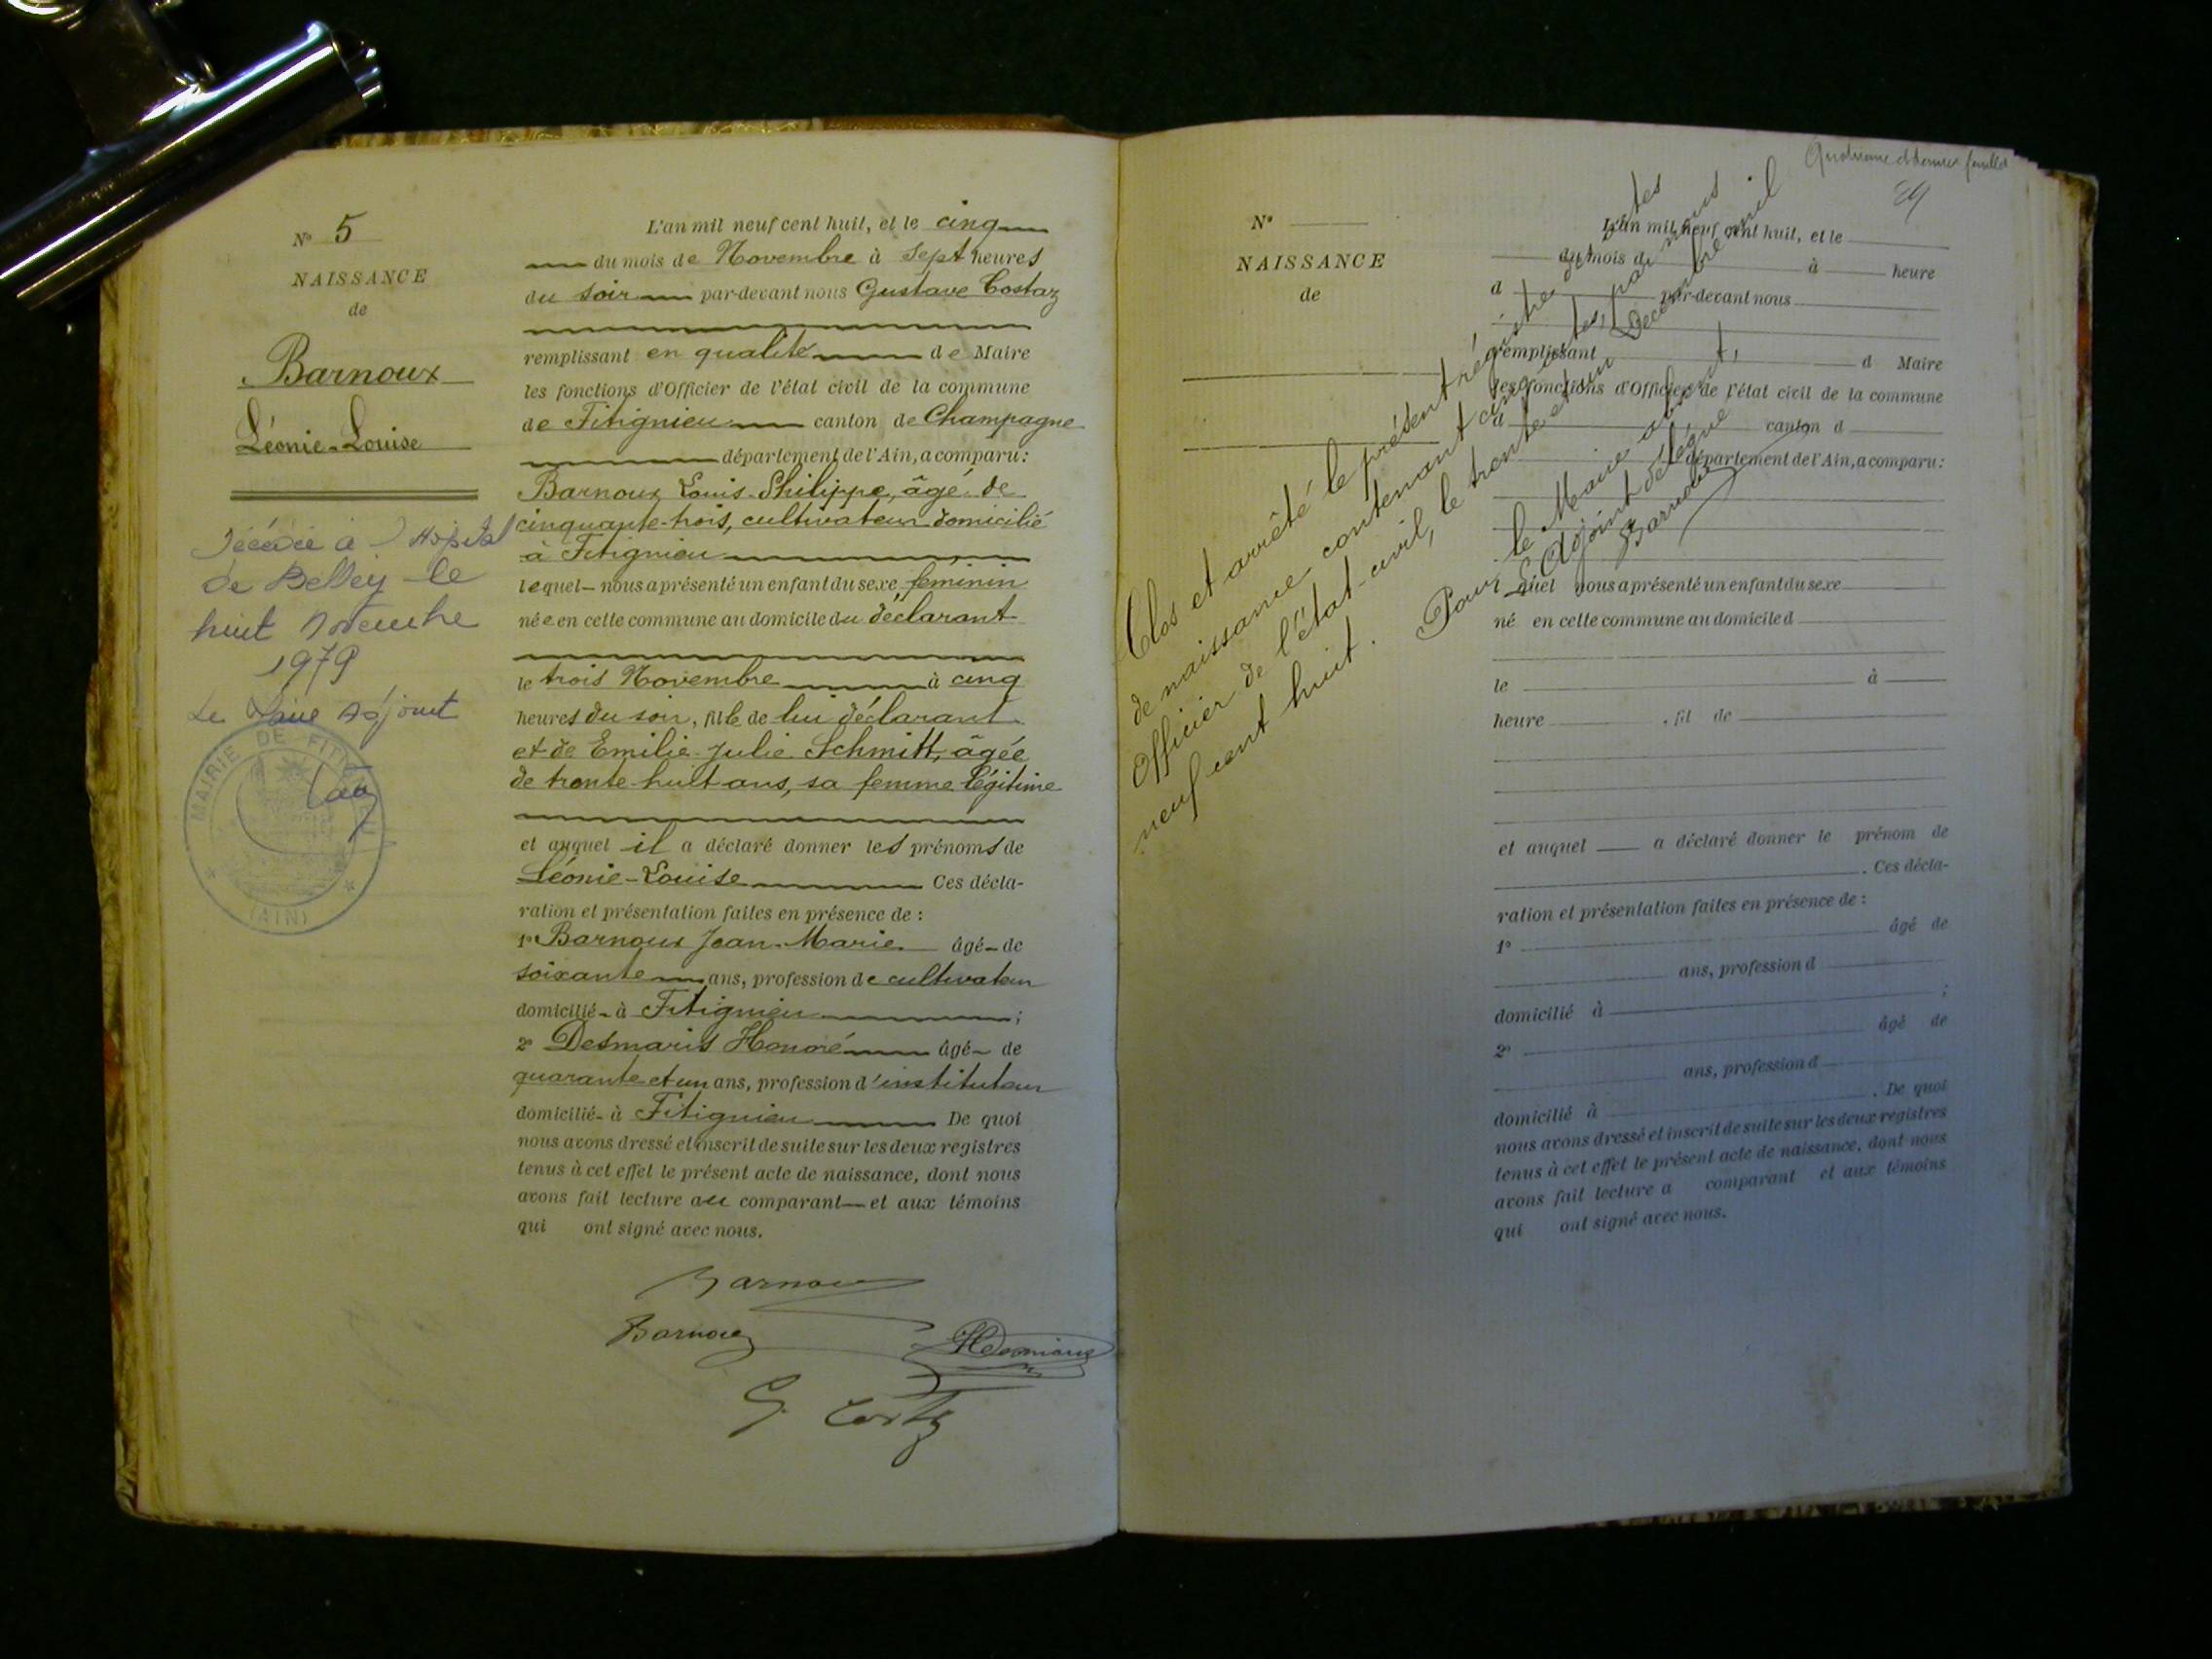 N° 5
NAISSANCE
de
Barnoux
Léonie-Louise
Décédée à l'Hôpital
de Belley le
huit Novembre
1979
Le Maire Adjoint
MAIRIE DE FITIGNIEU
(AIN)
L'an mil neuf cent huit, et le cinq
du mois de Novembre à sept heures
du soir par-devant nous Gustave Costaz
remplissant en qualité de Maire
les fonctions d'Officier de l'état civil de la commune
de Fitignieu canton de Champagne
département de l'Ain, a comparu:
Barnoux Louis-Philippe, âgé de
cinquante-trois, cultivateur domicilié
à Fitignieu
lequel nous a présenté un enfant du sexe féminin
née en cette commune au domicile du déclarant
le trois Novembre à cinq
heures du soir, fille de lui déclarant
et de Emilie-Julie Schmitt, âgée
de trente-huit ans, sa femme légitime
et auquel il a déclaré donner les prénoms de
Léonie-Louise Ces décla-
ration et présentation faites en présence de :
1° Barnoux Jean-Marie âgé de
soixante ans, profession de cultivateur
domicilié à Fitignieu ;
2° Desmaris Honoré âgé de
quarante et un ans, profession d'instituteur
domicilié à Fitignieu De quoi
nous avons dressé et inscrit de suite sur les deux registres
tenus à cet effet le présent acte de naissance, dont nous
avons fait lecture au comparant et aux témoins
qui ont signé avec nous.
Barnoux
Barnoux
HDesmaris
G. Costaz
Quatrième et dernier feuillet
N°
NAISSANCE
de
L'an mil neuf cent huit, et le
du mois d à heure
d par-devant nous
remplissant d Maire
les fonctions d'Officier de l'état civil de la commune
d canton d
département de l'Ain, a comparu:
quel nous a présenté un enfant du sexe
né en cette commune au domicile d
le à
heure , fil de
et auquel a déclaré donner le prénom de
. Ces décla-
ration et présentation faites en présence de :
1° âgé de
ans, profession d
domicilié à ;
2° âgé de
ans, profession d
domicilié à . De quoi
nous avons dressé et inscrit de suite sur les deux registres
tenus à cet effet le présent acte de naissance, dont nous
avons fait lecture a comparant et aux témoins
qui ont signé avec nous.
Clos et arrêté le présent régistre des actes
de naissance contenant cinq actes, par nous
Officier de l'état-civil, le trente et un Décembre mil
neuf cent huit.
Pour le Maire absent,
L'Adjoint délégué